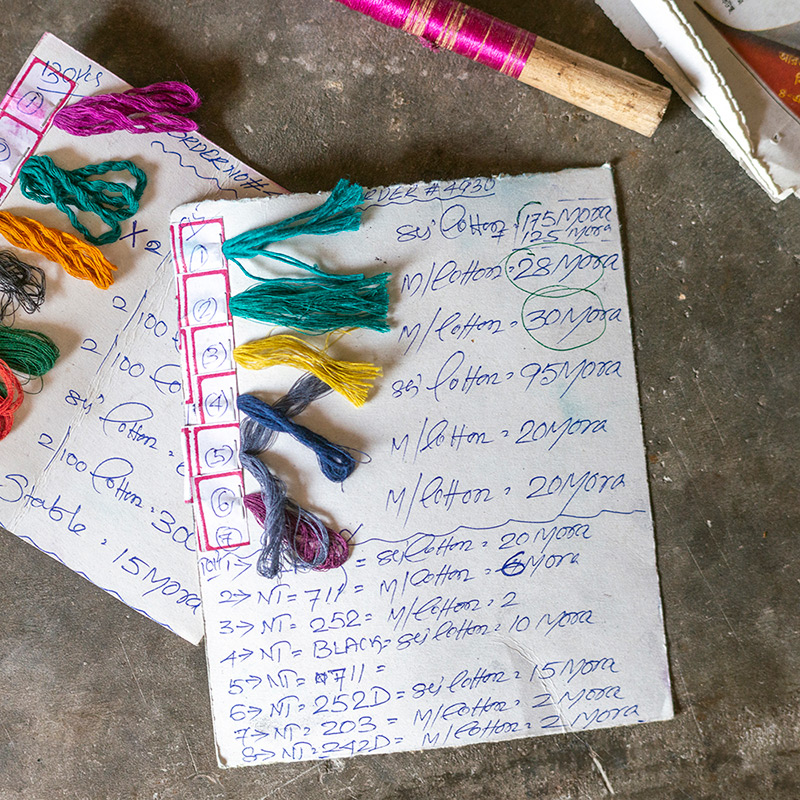 130Pcs
①
ORDER NO #
X 2
2/100
2/100
sej Cotton =
2/100 Cotton = 300
Stable = 15 Mora
ORDER # 4930
sej Cotton = 175 Mora
125 Mora
① M/Cotton = 28 Mora
② M/Cotton = 30 Mora
③ sej Cotton = 95 Mora
④ M/Cotton = 20 Mora
⑤ M/Cotton = 20 Mora
⑥
⑦
1→ = sej Cotton = 20 Mora
2→ NT = 711 = M/Cotton = 6 Mora
3→ NT = 252 = M/Cotton = 2
4→ NT = BLACK = sej Cotton = 10 Mora
5→ NT = 711 =
6→ NT = 252D = sej Cotton = 15 Mora
7→ NT = 203 = M/Cotton = 2 Mora
8→ NT = 242D = M/Cotton = 2 Mora